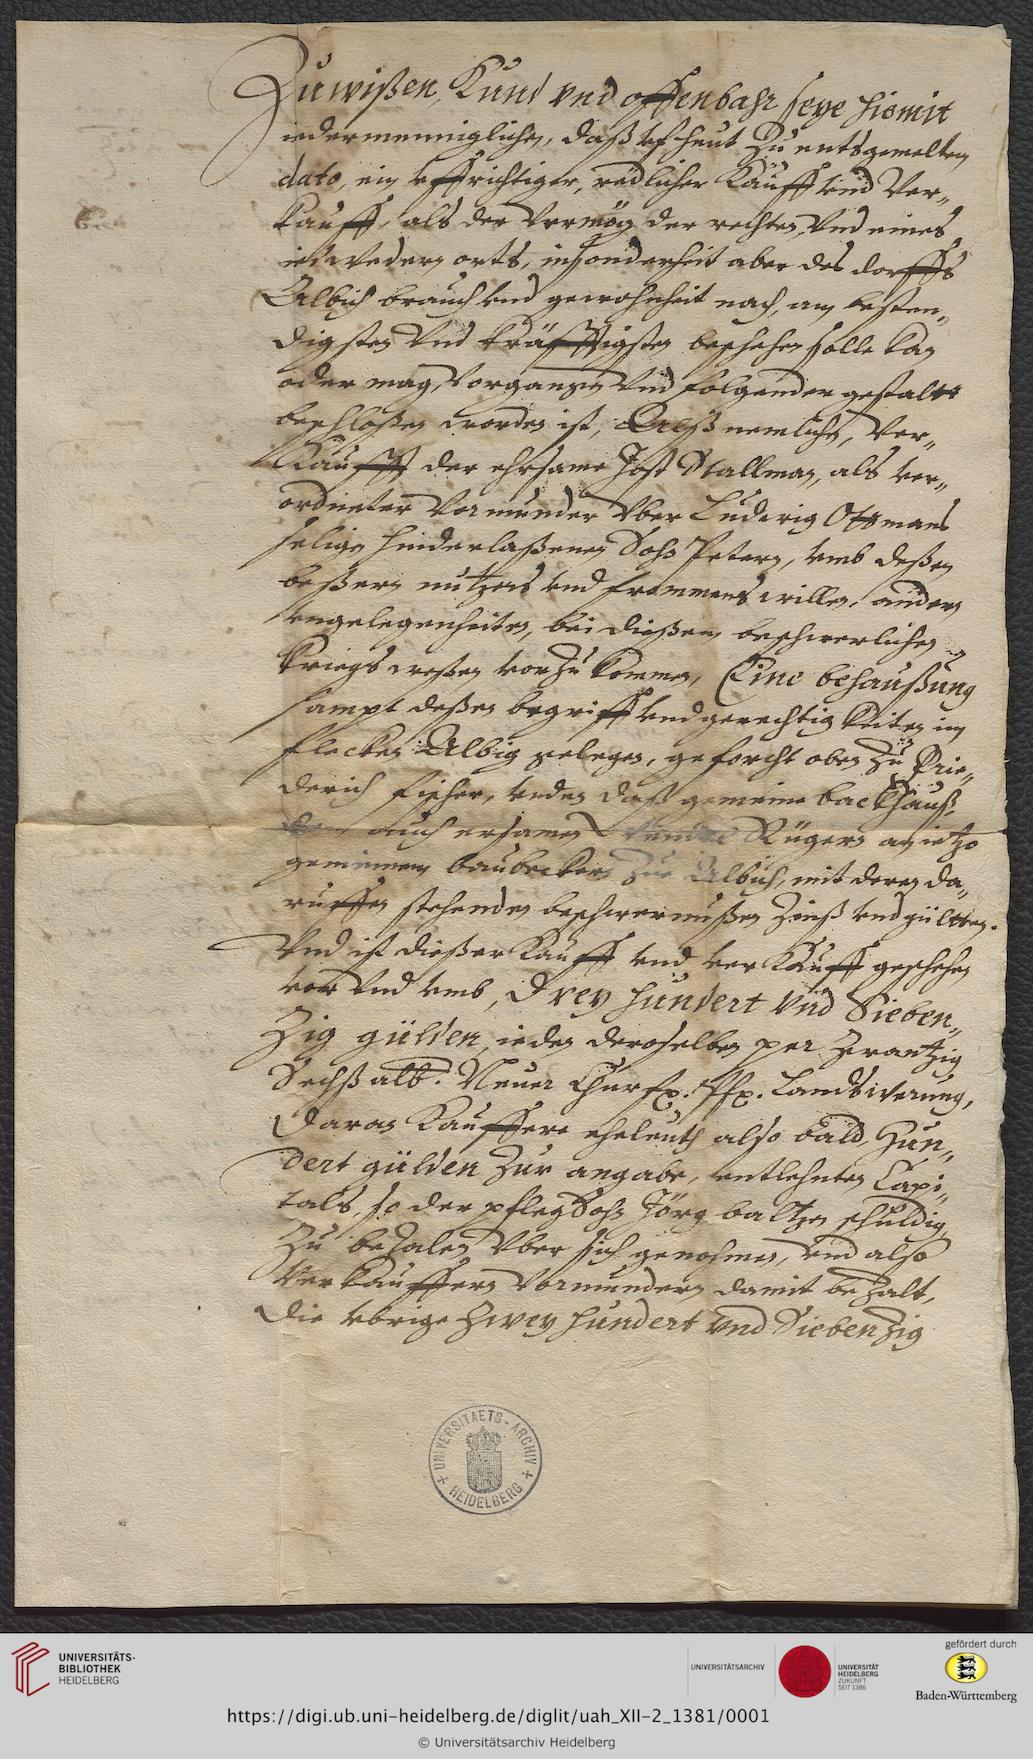 Zuwißen, Kund vnd offenbahr seye hiemit
iedermenniglichen, daß vf heut zu entsgemelten
dato, ein vffrichtiger, redlicher Kauff vnd Ver„
kauff, als der vermög der rechten, vnd eines
iedweders orts, insonderheit aber des dorffs
Albich brauch vnd gewohnheit nach, am besten„
digsten vnd kräfftigsten beschehen solle kan
oder mag, vorgangen vnd folgender gestalt
beschloßen worden ist, nemlichen, Ver„
Kaufft der ehrsame Jost Stallman, als ver„
ordneter Vormunder vber Ludwig Ottmans
seligen hinderlaßenen Sohn Petern, vmb deßen
beßern nutzens vnd frommens willen, andern
vngelegenheiten, bei dießem beschwerlichen
Kriegs weßen vorzukommen, Eine behaußung
sampt deßen begriff vnd gerechtigkeiten im
flecken Albig gelegen, geforcht oben zu Frie„
derich fischer, vnden daß gemeine backhauß,
auch ersamen Rügern an ietzo
gemeinem zue Albich, mit deren da„
ruffen stehenden beschwernußen Zinß vnd gülten.
Vnd ist dießer Kauff vnd verkauff geschehen
vor vnd vmb, Drey hundert vnd Sieben„
Zig gülden, ieden deroselben per Zwantzig
Sechß alb. Neuer Churfr. Pfr. Landtswerung,
Daran Kauffere eheleuth also bald, Hun„
dert gülden zur angabe, entlehnten Capi„
tals, so der pflegSohn Jörg baltzen schuldig,
Zu bezalen vber sich genohmen, vnd also
Verkauffern Vormundern damit bezalt,
Die vbrige Zwey hundert vnd Siebenzig
UNIVERSITAETS-ARCHIV
HEIDELBERG
UNIVERSITÄTS-
BIBLIOTHEK
HEIDELBERG
UNIVERSITÄTSARCHIV
UNIVERSITÄT
HEIDELBERG
ZUKUNFT
SEIT 1386
gefördert durch
Baden-Württemberg
https://digi.ub.uni-heidelberg.de/diglit/uah_XII-2_1381/0001
© Universitätsarchiv Heidelberg